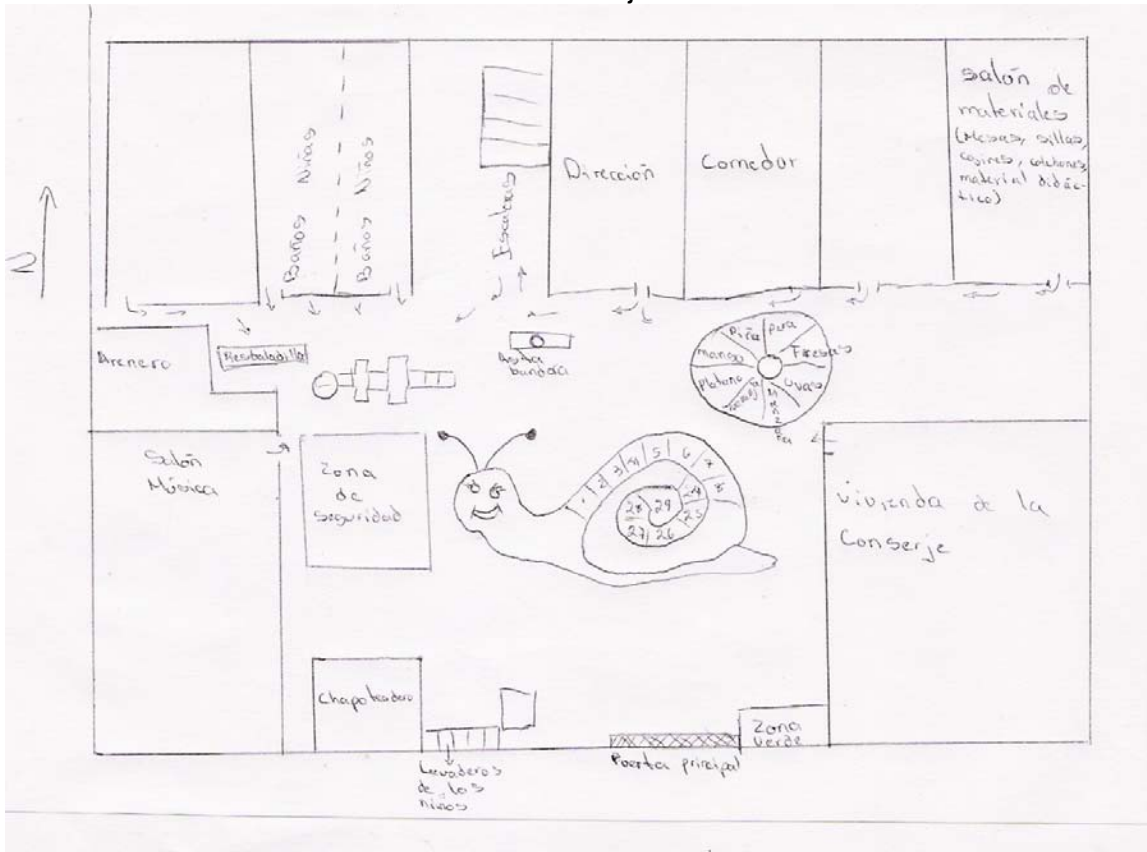 Baños Niñas
Baños Niños
Escaleras
Dirección
Comedor
Salón de
materiales
(Mesas, sillas,
cojines, colchones,
material didác-
tico)
N
Arenero
Resbaladilla
Asta
bandera
Piña
pera
Fresas
uvas
mango
Platano
Salón
Música
Zona
de
seguridad
1 2 3 4 5 6 7 8
24
25
26
27
28
29
vivienda de la
Conserje
Chapoteadero
Lavaderos
de los
niños
Puerta principal
Zona
verde